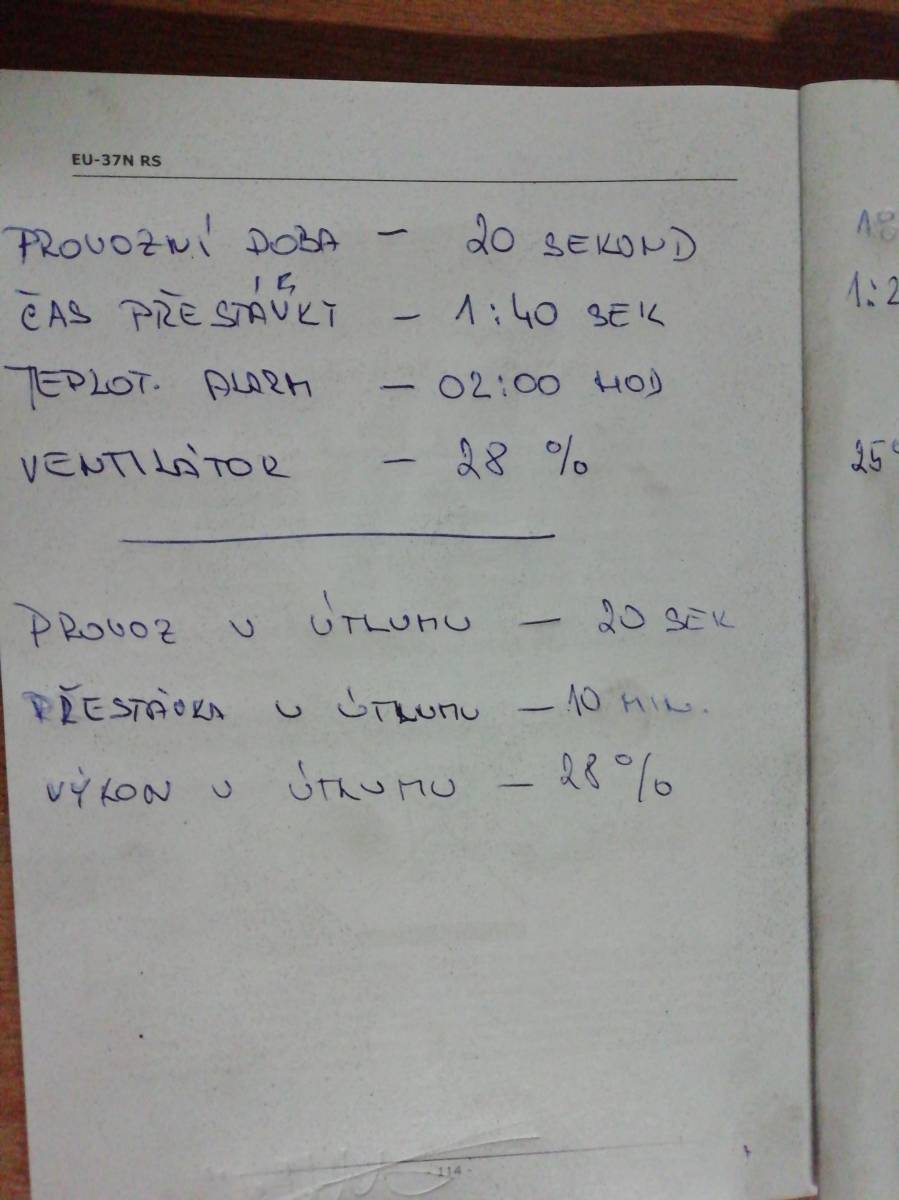 EU-37N RS
PROVOZNÍ DOBA - 20 SEKOND
ČAS PŘESTÁVKY - 1:40 SEK
TEPLOT. ALARM - 02:00 HOD
VENTILÁTOR - 28 %
PROVOZ V ÚTLUMU - 20 SEK
PŘESTÁVKA V ÚTLUMU - 10 MIN.
VÝKON V ÚTLUMU - 28 %
- 114 -
18
1:2
25